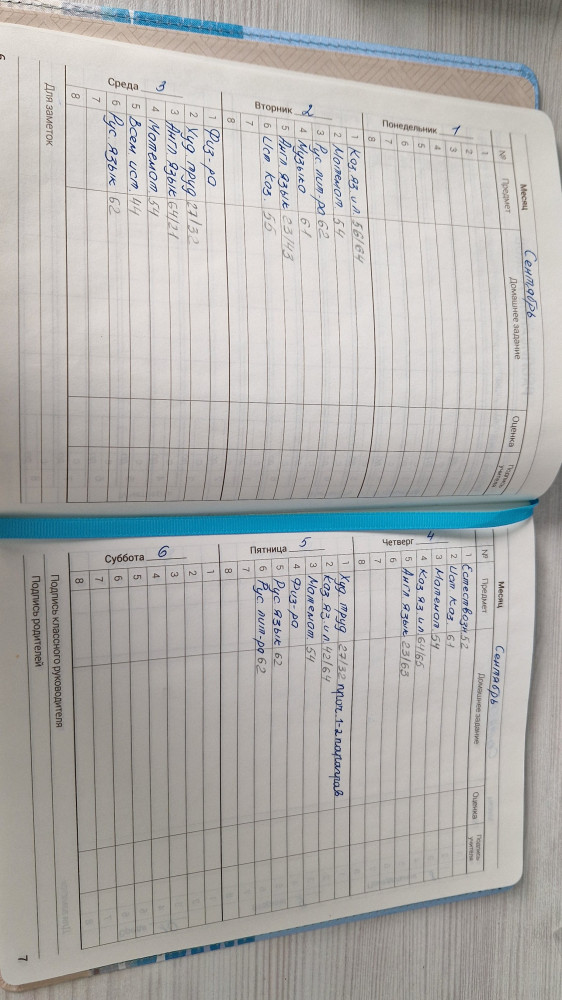 Месяц Сентябрь
№ Предмет Домашнее задание Оценка Подпись учителя
Понедельник 1
1
2
3
4
5
6
7
8
Вторник 2
1 Каз яз ил 56/64
2 Математ 54
3 Рус лит-ра 62
4 Музыка 61
5 Англ язык 23/43
6 Ист Каз. 56
7
8
Среда 3
1 Физ-ра
2 Худ труд 27/32
3 Англ язык 64/21
4 Математ 54
5 Всем ист. 44
6 Рус язык 62
7
8
Для заметок
6
Месяц Сентябрь
№ Предмет Домашнее задание Оценка Подпись учителя
Четверг 4
1 Естествозн 52
2 Ист Каз 61
3 Математ 54
4 Каз яз ил 64/65
5 Англ язык 23/63
6
7
8
Пятница 5
1 Худ труд 27/32 проч. 1-2 параграв
2 Каз яз. ил 42/64
3 Математ 54
4 Физ-ра
5 Рус язык 62
6 Рус лит-ра 62
7
8
Суббота 6
1
2
3
4
5
6
7
8
Подпись классного руководителя
Подпись родителей
7